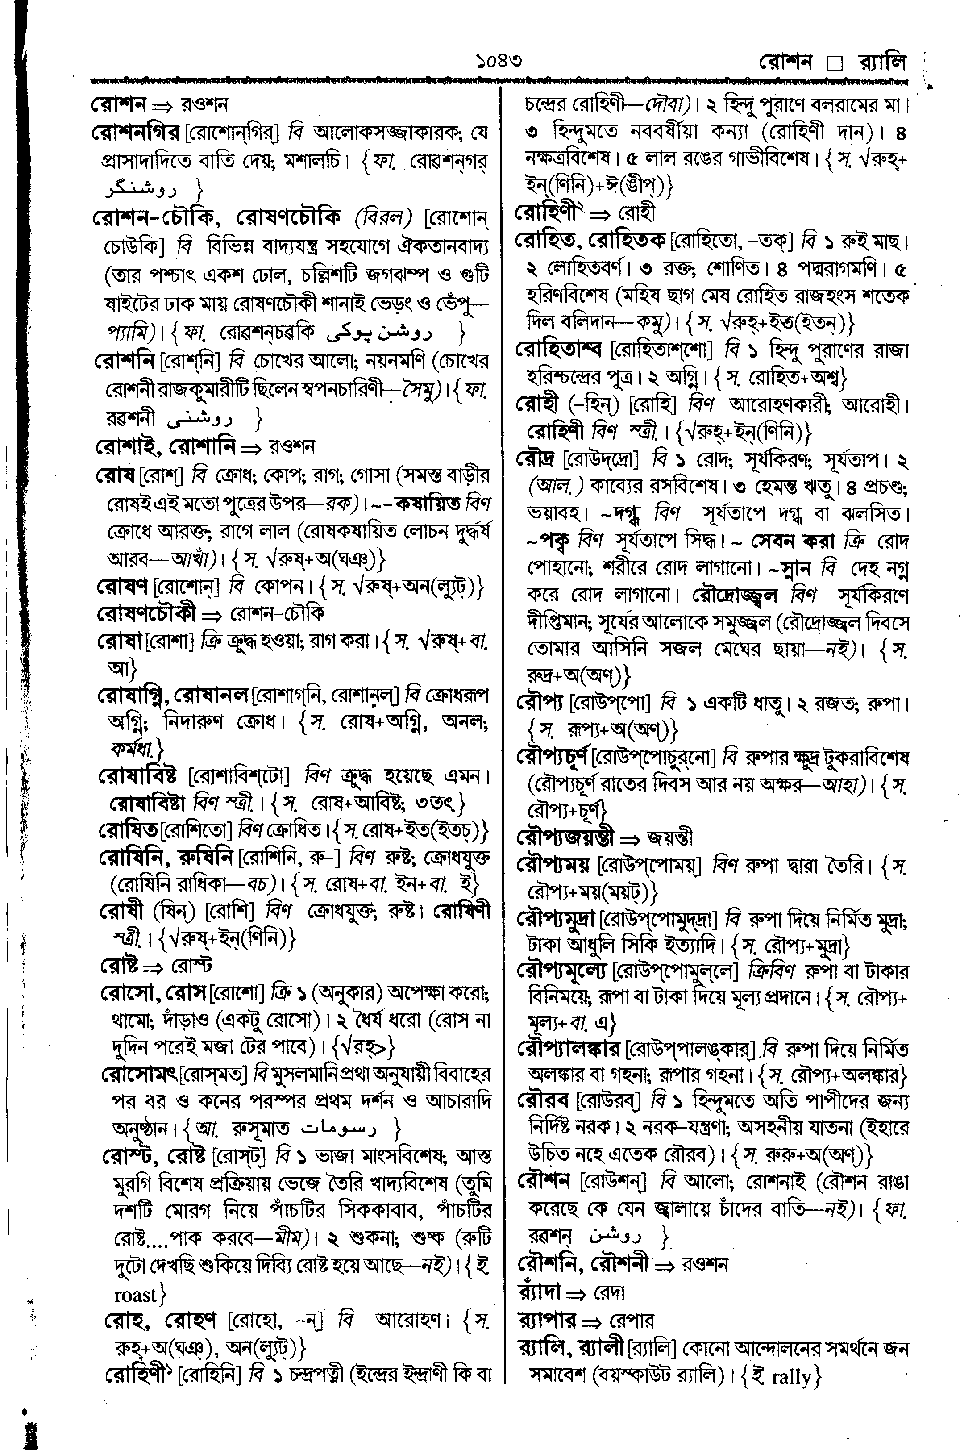 ১০৪৩
রোশন □ র‍্যালি
রোশন ⇒ রওশন
রোশনগির [রোশোন্‌গির] বি আলোকসজ্জাকারক; যে
প্রাসাদাদিতে বাতি দেয়; মশালচি। {ফা. রোৱশন্‌গর্
روشنگر }
রোশন-চৌকি, রোষণচৌকি (বিরল) [রোশোন্
চোউকি] বি বিভিন্ন বাদ্যযন্ত্র সহযোগে ঐকতানবাদ্য
(তার পশ্চাৎ একশ ঢোল, চল্লিশটি জগঝম্প ও গুটি
ষাইটের ঢাক মায় রোষণচৌকী শানাই ভেড়ং ও ভেঁপু—
প্যামি)। {ফা. রোৱশন্‌চৱকি روشن پوکی }
রোশনি [রোশ্‌নি] বি চোখের আলো; নয়নমণি (চোখের
রোশনী রাজকুমারীটি ছিলেন স্বপনচারিণী—সৈমু)। {ফা.
রৱশনী روشنی }
রোশাই, রোশানি ⇒ রওশন
রোষ [রোশ্] বি ক্রোধ; কোপ; রাগ; গোসা (সমস্ত বাড়ীর
রোষই এই মতো পুত্রের উপর—রক)। ~-কষায়িত বিণ
ক্রোধে আরক্ত; রাগে লাল (রোষকষায়িত লোচন দুর্দ্ধর্ষ
আরব—আখাঁ)। {স. √রুষ্+অ(ঘঞ্)}
রোষণ [রোশোন্] বি কোপন। {স. √রুষ্+অন(ল্যুট্)}
রোষণচৌকী ⇒ রোশন-চৌকি
রোষা [রোশা] ক্রি ক্রুদ্ধ হওয়া; রাগ করা। {স. √রুষ্+বা.
আ}
রোষাগ্নি, রোষানল [রোশাগ্‌নি, রোশানল্] বি ক্রোধরূপ
অগ্নি; নিদারুণ ক্রোধ। {স. রোষ+অগ্নি, অনল;
কর্মধা.}
রোষাবিষ্ট [রোশাবিশ্‌টো] বিণ ক্রুদ্ধ হয়েছে এমন।
রোষাবিষ্টা বিণ স্ত্রী.। {স. রোষ+আবিষ্ট; ৩তৎ}
রোষিত [রোশিতো] বিণ ক্রোধিত। {স. রোষ+ইত(ইতচ্)}
রোষিনি, রুষিনি [রোশিনি, রু-] বিণ রুষ্ট; ক্রোধযুক্ত
(রোষিনি রাধিকা—বচ)। {স. রোষ+বা. ইন+বা. ই}
রোষী (ষিন্) [রোশি] বিণ ক্রোধযুক্ত; রুষ্ট। রোষিণী
স্ত্রী.। {√রুষ্+ইন্(ণিনি)}
রোষ্ট ⇒ রোস্ট
রোসো, রোস [রোশো] ক্রি ১ (অনুকার) অপেক্ষা করো;
থামো; দাঁড়াও (একটু রোসো)। ২ ধৈর্য ধরো (রোস না
দুদিন পরেই মজা টের পাবে)। {√রহ্>}
রোসোমৎ [রোস্‌মত্] বি মুসলমানি প্রথা অনুযায়ী বিবাহের
পর বর ও কনের পরস্পর প্রথম দর্শন ও আচারাদি
অনুষ্ঠান। {আ. রুসূমাত رسومات }
রোস্ট, রোষ্ট [রোস্‌ট্] বি ১ ভাজা মাংসবিশেষ; আস্ত
মুরগি বিশেষ প্রক্রিয়ায় ভেজে তৈরি খাদ্যবিশেষ (তুমি
দশটি মোরগ নিয়ে পাঁচটির সিককাবাব, পাঁচটির
রোষ্ট....পাক করবে—মীম)। ২ শুকনা; শুষ্ক (রুটি
দুটো দেখছি শুকিয়ে দিব্যি রোষ্ট হয়ে আছে—নই)। {ই
roast}
রোহ, রোহণ [রোহো, -ন্] বি আরোহণ। {স.
রুহ্+অ(ঘঞ্), অন(ল্যুট্)}
রোহিণী১ [রোহিনি] বি ১ চন্দ্রপত্নী (ইন্দ্রের ইন্দ্রাণী কি বা
চন্দ্রের রোহিণী—দৌবা)। ২ হিন্দু পুরাণে বলরামের মা।
৩ হিন্দুমতে নববর্ষীয়া কন্যা (রোহিণী দান)। ৪
নক্ষত্রবিশেষ। ৫ লাল রঙের গাভীবিশেষ। {স. √রুহ্+
ইন্(ণিনি)+ঈ(ঙীপ্)}
রোহিণী২ ⇒ রোহী
রোহিত, রোহিতক [রোহিতো, -তক্] বি ১ রুই মাছ।
২ লোহিতবর্ণ। ৩ রক্ত; শোণিত। ৪ পদ্মরাগমণি। ৫
হরিণবিশেষ (মহিষ ছাগ মেষ রোহিত রাজহংস শতেক
দিল বলিদান—কমু)। {স. √রুহ্+ইত(ইতন্)}
রোহিতাশ্ব [রোহিতাশ্‌শো] বি ১ হিন্দু পুরাণের রাজা
হরিশ্চন্দ্রের পুত্র। ২ অগ্নি। {স. রোহিত+অশ্ব}
রোহী (-হিন্) [রোহি] বিণ আরোহণকারী; আরোহী।
রোহিণী বিণ স্ত্রী.। {√রুহ্+ইন্(ণিনি)}
রৌদ্র [রোউদ্‌দ্রো] বি ১ রোদ; সূর্যকিরণ; সূর্যতাপ। ২
(আল.) কাব্যের রসবিশেষ। ৩ হেমন্ত ঋতু। ৪ প্রচণ্ড;
ভয়াবহ। ~দগ্ধ বিণ সূর্যতাপে দগ্ধ বা ঝলসিত।
~পক্ব বিণ সূর্যতাপে সিদ্ধ। ~ সেবন করা ক্রি রোদ
পোহানো; শরীরে রোদ লাগানো। ~স্নান বি দেহ নগ্ন
করে রোদ লাগানো। রৌদ্রোজ্জ্বল বিণ সূর্যকিরণে
দীপ্তিমান; সূর্যের আলোকে সমুজ্জ্বল (রৌদ্রোজ্জ্বল দিবসে
তোমার আসিনি সজল মেঘের ছায়া—নই)। {স.
রুদ্র+অ(অণ্)}
রৌপ্য [রোউপ্‌পো] বি ১ একটি ধাতু। ২ রজত; রুপা।
{স. রূপ্য+অ(অণ্)}
রৌপ্যচূর্ণ [রোউপ্‌পোচুর্‌নো] বি রুপার ক্ষুদ্র টুকরাবিশেষ
(রৌপ্যচূর্ণ রাতের দিবস আর নয় অক্ষর—আহা)। {স.
রৌপ্য+চূর্ণ}
রৌপ্যজয়ন্তী ⇒ জয়ন্তী
রৌপ্যময় [রোউপ্‌পোময়্] বিণ রুপা দ্বারা তৈরি। {স.
রৌপ্য+ময়(ময়ট্)}
রৌপ্যমুদ্রা [রোউপ্‌পোমুদ্‌দ্রা] বি রুপা দিয়ে নির্মিত মুদ্রা;
টাকা আধুলি সিকি ইত্যাদি। {স. রৌপ্য+মুদ্রা}
রৌপ্যমূল্যে [রোউপ্‌পোমুল্‌লে] ক্রিবিণ রুপা বা টাকার
বিনিময়ে; রূপা বা টাকা দিয়ে মূল্য প্রদানে। {স. রৌপ্য+
মূল্য+বা. এ}
রৌপ্যালঙ্কার [রোউপ্‌পালঙ্‌কার্] বি রুপা দিয়ে নির্মিত
অলঙ্কার বা গহনা; রূপার গহনা। {স. রৌপ্য+অলঙ্কার}
রৌরব [রোউরব্] বি ১ হিন্দুমতে অতি পাপীদের জন্য
নির্দিষ্ট নরক। ২ নরক-যন্ত্রণা; অসহনীয় যাতনা (ইহারে
উচিত নহে এতেক রৌরব)। {স. রুরু+অ(অণ্)}
রৌশন [রোউশন্] বি আলো; রোশনাই (রৌশন রাঙা
করেছে কে যেন জ্বালায়ে চাঁদের বাতি—নই)। {ফা.
রৱশন্ روشن }
রৌশনি, রৌশনী ⇒ রওশন
র‍্যাঁদা ⇒ রেদা
র‍্যাপার ⇒ রেপার
র‍্যালি, র‍্যালী [র‍্যালি] কোনো আন্দোলনের সমর্থনে জন
সমাবেশ (বয়স্কাউট র‍্যালি)। {ই rally}